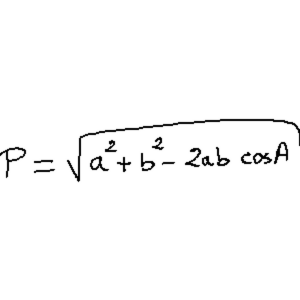 P = √(a² + b² - 2ab cosA)